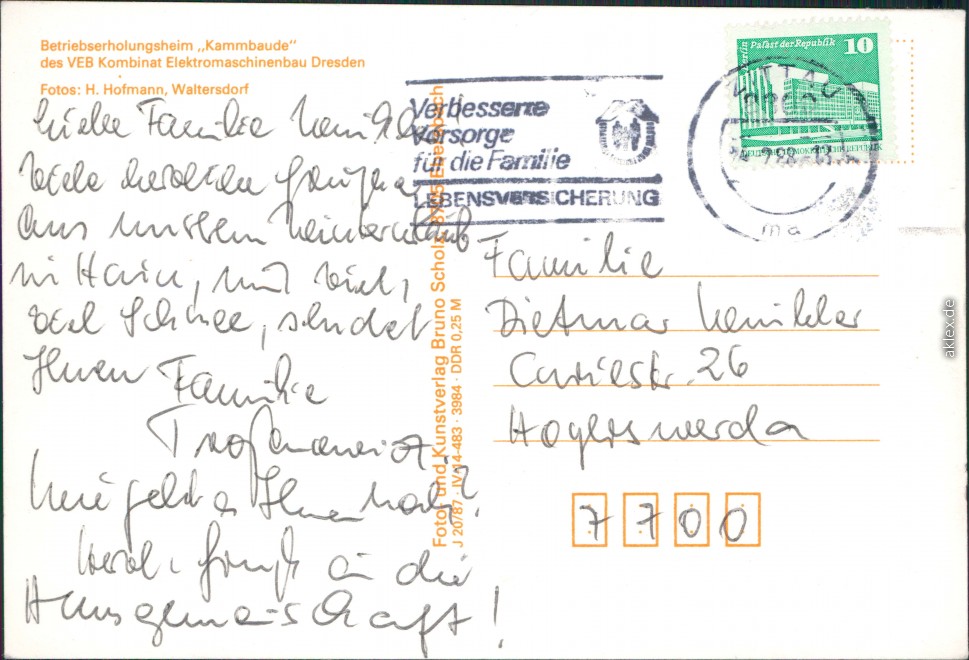 Betriebserholungsheim „Kammbaude"
des VEB Kombinat Elektromaschinenbau Dresden
Fotos: H. Hofmann, Waltersdorf
Liebe Familie
Viele herzliche Grüße
aus unserem Winterurlaub
in Hain, mit viel,
viel Schnee, sendet
Ihnen Familie
Wie geht es Ihnen
Herzl. Grüße an die
Hausgemeinschaft!
Foto- und Kunstverlag Bruno Scholz
J 20/87 · IV-14-483 · 3984 · DDR 0,25 M
Verbesserte
Vorsorge
für die Familie
LEBENSVERSICHERUNG
Berlin Palast der Republik 10
ZITTAU
ma
Familie
Dietmar
Curiestr. 26
Hoyerswerda
7700
aklex.de